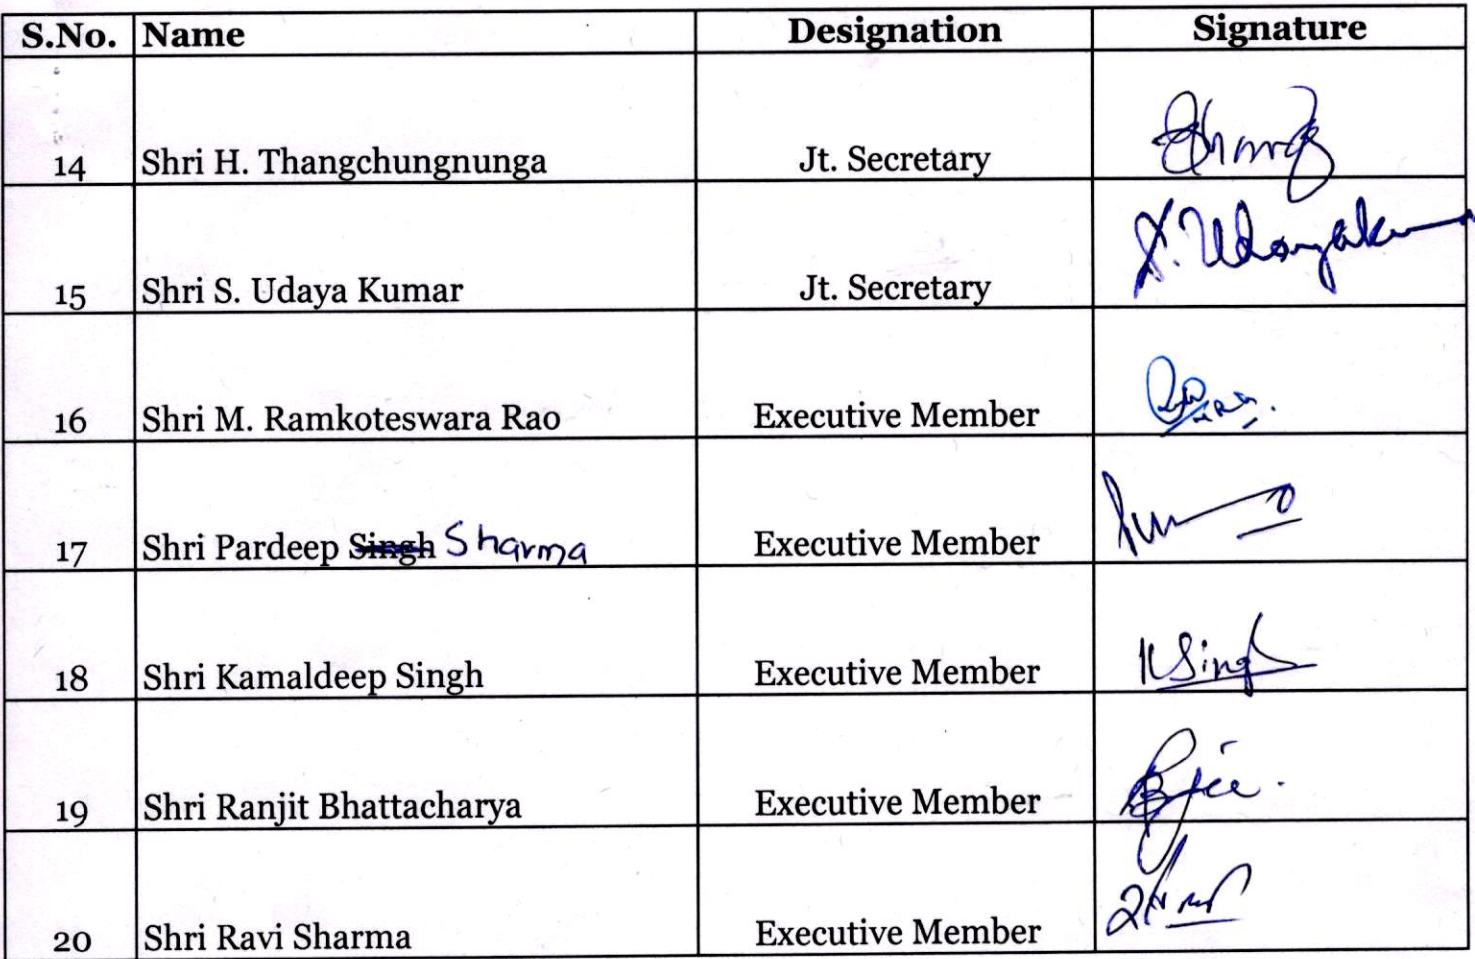 S.No. Name Designation Signature
14 Shri H. Thangchungnunga Jt. Secretary
15 Shri S. Udaya Kumar Jt. Secretary S. Udayakum
16 Shri M. Ramkoteswara Rao Executive Member
17 Shri Pardeep Singh Sharma Executive Member
18 Shri Kamaldeep Singh Executive Member KSingh
19 Shri Ranjit Bhattacharya Executive Member
20 Shri Ravi Sharma Executive Member